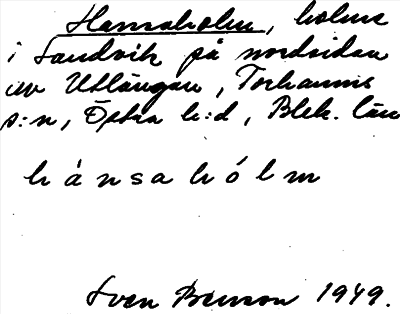 Hansaholm, holme
i Sandvik på nordsidan
av Utlängan, Torhamns
s:n, Östra h:d, Blek. län
hánsahólm
Sven Benson 1949.